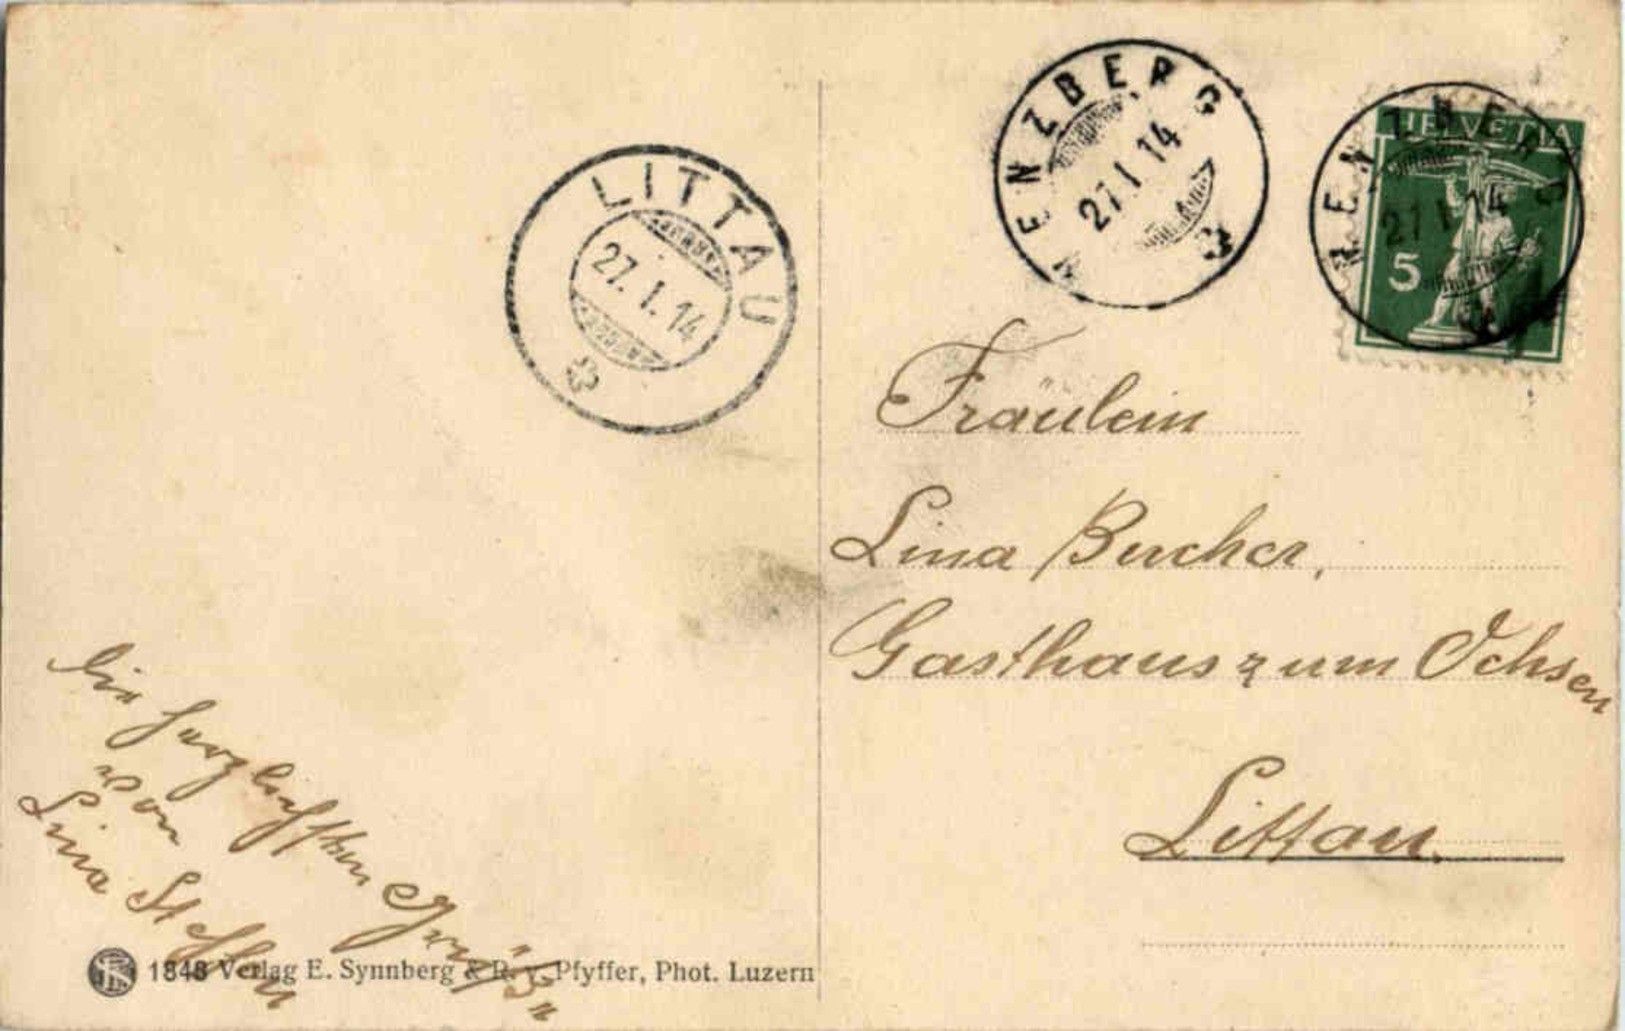 LITTAU
27. I. 14
MENZBERG
27. I 14
MENZBERG
27 I 14
HELVETIA
5
Fräulein
Lina Bucher,
Gasthaus zum Ochsen
Littau.
Die herzlichsten Grüße
von
Lina Steffen
1848 Verlag E. Synnberg & R. v. Pfyffer, Phot. Luzern